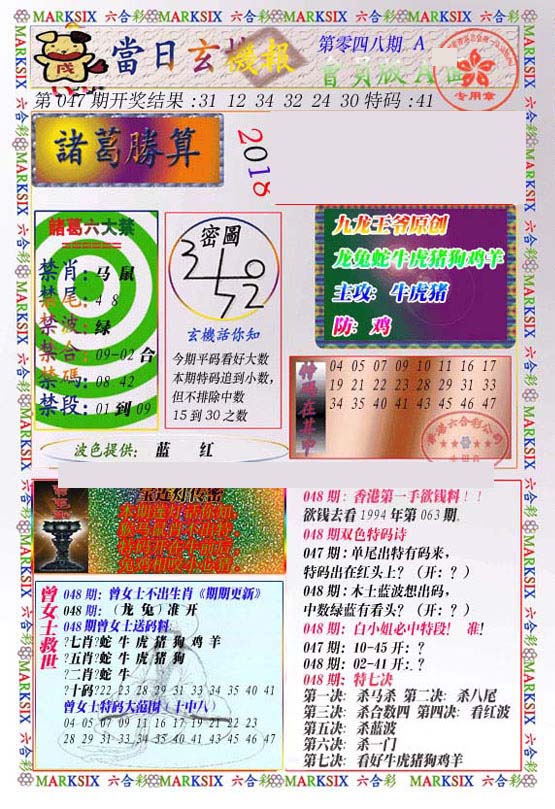 MARKSIX 六合彩 MARKSIX 六合彩 MARKSIX 六合彩 MARKSIX 六合彩
當日玄機報
第零四八期 A
會員版A面
专用章
第 047 期开奖结果 :31 12 34 32 24 30 特码 :41
諸葛勝算
2018
諸葛六大禁
禁肖: 马 鼠
禁尾: 4 8
禁波: 绿
禁合: 09-02 合
禁碼: 08 42
禁段: 01 到 09
密圖
玄機話你知
今期平码看好大数
本期特码追到小数,
但不排除中数
15 到 30 之数
九龙王爷原创
龙兔蛇牛虎猪狗鸡羊
主攻: 牛虎猪
防: 鸡
04 05 07 09 10 11 16 17
19 21 22 23 28 29 31 33
34 35 40 41 43 45 46 47
波色提供: 蓝 红
宝莲灯传密
曾女士救世
048 期: 曾女士不出生肖《期期更新》
048 期: (龙 兔) 准 开
048 期曾女士送码料:
?七肖?蛇 牛 虎 猪 狗 鸡 羊
?五肖?蛇 牛 虎 猪 狗
?二肖?蛇 牛
?十码?22 23 28 29 31 33 34 35 40 41
曾女士特码大范围 (十中八)
04 05 07 09 11 16 17 19 21 22 23
28 29 31 33 34 35 40 41 43 45 46 47
048 期: 香港第一手欲钱料 ! !
欲钱去看 1994 年第 063 期.
048 期双色特码诗
047 期: 单尾出特有码来,
特码出在红头上? (开: ? )
048 期: 木土蓝波想出码,
中数绿蓝有看头? (开: ? )
048 期: 白小姐必中特段! 准!
047 期: 10-45 开: ?
048 期: 02-41 开: ?
048 期: 特七决
第一决: 杀马杀 第二决: 杀八尾
第三决: 杀合数四 第四决: 看红波
第五决: 杀蓝波
第六决: 杀一门
第七决: 看好牛虎猪狗鸡羊
MARKSIX 六合彩 MARKSIX 六合彩 MARKSIX 六合彩 MARKSIX 六合彩